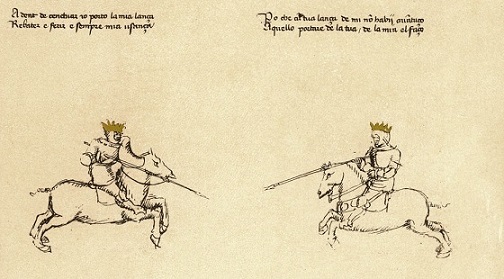 A dent de cenchiar io porto la mia lança
Rebater e ferir e sempre mia usança
Po che tua lança de mi nō habii auātaço
Aquello portare de la tua / de la mia el faço